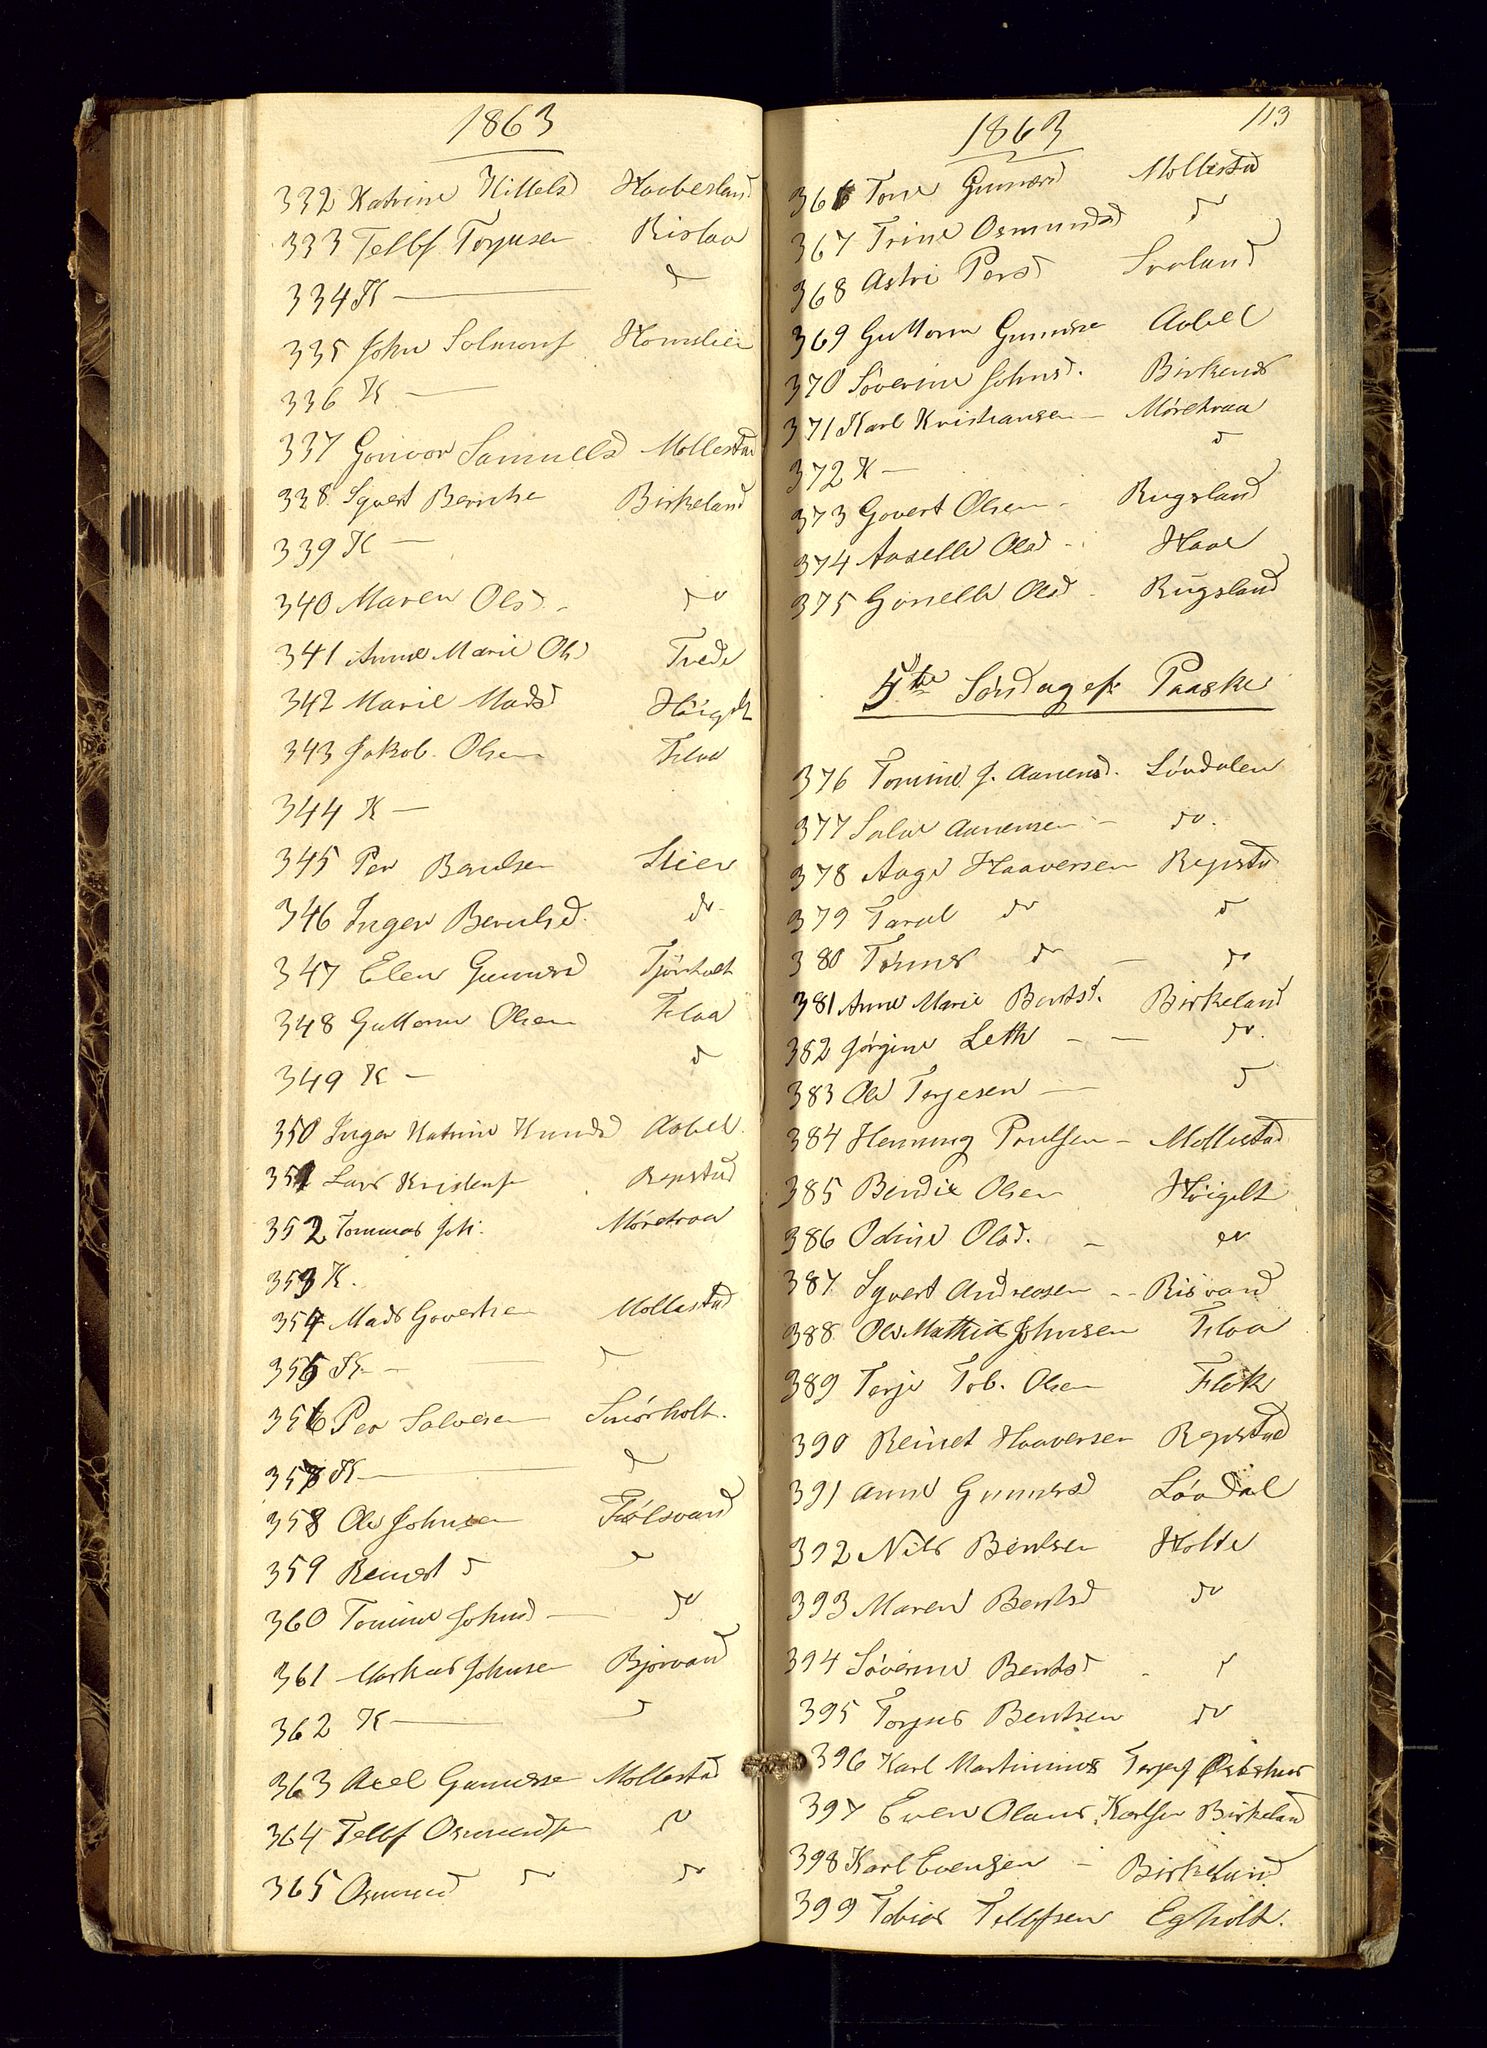 1863
332 Katrine Kittels Haabesland
333 Tellf Torjusen Rislaa
334 K — d
335 John Salmons Homslien
336 K —
337 Gonvor Samuelsd Mollestad
338 Syvert Berntse Birkeland
339 K —
340 Maren Olsd. do
341 Anne Marie Ols Tvede
342 Marie Madsd Höigilt
343 Jakob Olsen Flaa
344 K —
345 Per Berulsen Lien
346 Inger Berulsd. do
347 Elen Gunnersd Tjörholt
348 Guttorm Olsen Flaa
349 K — d
350 Inger Katrine Knudsd Aabel
351 Lars Kristens Repstad
352 Tommas Joh. Möretraa
353 K.
354 Mads Govertsen Mollestad
355 K — d
356 Per Salvesen Smörholt.
357 K — d
358 Ole Johnsen Fiölsvand
359 Reinert d d
360 Tomine Johnsd — do
361 Markus Johnsen Bjorvand
362 K — d
363 Axel Gunnerse Mollestad
364 Tellf Osmundsen do
365 Osmund do do
113
1863
366 Tone Gunnersd Mollestad
367 Trine Osmundsd d
368 Astri Persd Svaland
369 Guttorm Gunnerse Aabel
370 Söverine Johnsd. Birkenes
371 Karl Kristiansen — Möretraa
372 K — d
373 Govert Olsen — Rugsland
374 Aaselle Olsd — Haae
375 Gonelle Olsd — Rugsland
5te Söndag eft Paaske
376 Tomine J. Aanensd. Lövdalen
377 Salve Aanensen — do.
378 Aage Haaversen Repstad
379 Taral do d
380 Tönnes do — do
381 Anne Marie Bentsd. Birkeland
382 Jörgine Leth — — do.
383 Ole Terjesen — d
384 Henning Poulsen — Mollestad
385 Bendix Olsen Höigilt
386 Odine Olsd. — do
387 Syvert Andreasen — Risvand
388 Ole Mathias Johnsen Flaa
389 Terje Tob. Olsen Flak
390 Reinert Haaversen Repstad
391 Anne Gunnersd Lövdal
392 Nils Bentsen Holte
393 Maren Bentsd do
394 Söverine Bentsd — d
395 Torjus Bentsen do
396 Karl Martinius Terjes
397 Even Olaus Karlsen Birkeland
398 Karl Evensen — Birkeland
399 Tobias Tellfsen Egholt.